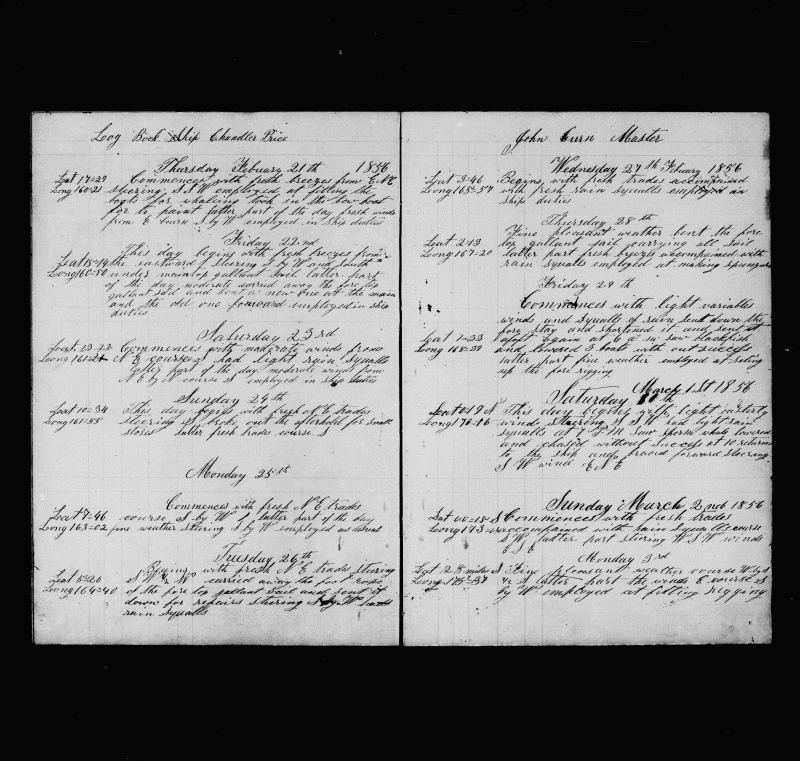 Loog Book Ship Chandler Price
Thursday Febuary 21th 1856
Laat 17=29 Commences with fresh breezes from E NE
Long 160=21 steering S S W employed at fitting the
boats for whaling took in the bow boat
for to paint latter part of the day fresh winds
from E course S by W employed in ship duties
Friday 22nd
This day begins with fresh breezes from
Laat 15=14 the eastward steering S by W and south
Loong 160=50 under maintop gallant Sail latter part
of the day moderate carried away the fore top
gallant sail and bent a new one at the main
and the old one forward employed in ship
duties
Saturday 23rd
Loat 13-22 Commences with moderate winds from
Loong 161=21 N E course S had slight rain Squalls
latter part of the day moderate winds from
N E by N course S employed in ship duties
Sunday 24th
Loat 10=34 This day begins with fresh N E trades
Loong 161=55 steering S broke out the afterhold for small
stores latter fresh trades course S
Monday 25th
Commences with fresh N E trades
Loat 7-46 course S by W latter part of the day
Loong 163=02 fine weather stering S by W employed as usual
Tuesday 26th
Begins with fresh N E trades stering
Loat 5=20 S W carried away the foot rope
Loong 164=40 of the fore top gallant Sail and sent it
down for repairs stering S by W
rain squalls
John Curn Master
Wednesday 27th Febuary 1856
Laat 3-46 Begins with fresh trades accompained
Loong 165=57 with fresh rain squalls employed in
ship duties
Thursday 28th
Fine pleasant weather bent the fore
Loat 2-13 top gallant sail carrying all sail
Loong 167-20 latter part fresh breezes accompained with
rain squalls employed at making
Friday 29th
Commences with light variables
winds and squalls of rain sent down the
fore stay and shortened it and sent it
Loat 1=33 aloft again at 9 a m saw blackfish
Loong 168=39 and lowered 3 boats with out success
latter part fine weather employed at seting
up the fore rigging
March 1st 1856
Saturday
Loat=0=19 S This day begins with light easterly
Loong 170=16 winds Stering S S W had light rain
squalls at 7 P M saw sperm whale lowered
and chased without success at 10 returned
to the ship and braced forward steering
S W wind E N E
Sunday March 2nd 1856
Lat 00=18 S Commences with fresh trades
Loong 173= accompained with rain Squalls course
S W latter part stering W S W winds
E S E
Monday 3rd
Lat 25 miles S Fine pleasant weather course W by S
Loong 175=37 & S latter part the winds E course S
by W employed at fitting rigging